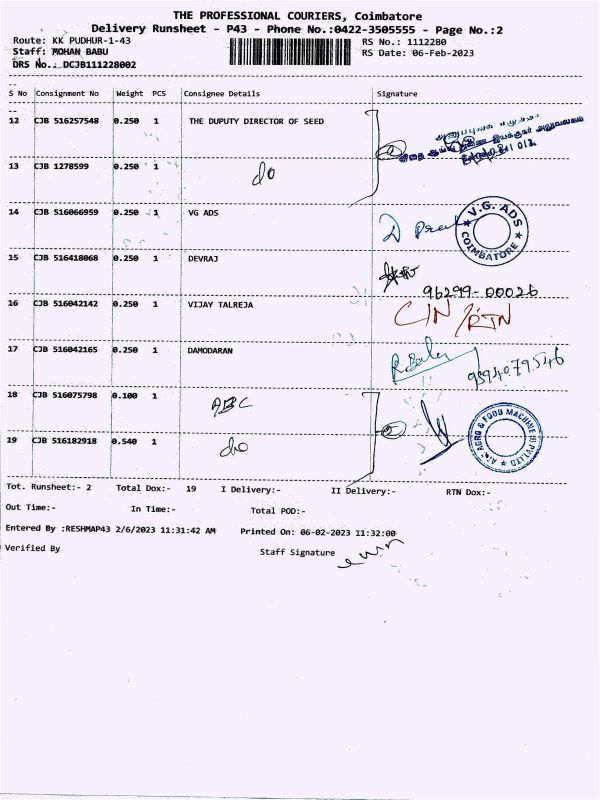 THE PROFESSIONAL COURIERS, Coimbatore
Delivery Runsheet - P43 - Phone No.:0422-3505555 - Page No.:2
Route: KK PUDHUR-1-43 RS No.: 1112280
Staff: MOHAN BABU RS Date: 06-Feb-2023
DRS No.: DCJB111228002
S No Consignment No Weight PCS Consignee Details Signature
12 CJB 516257548 0.250 1 THE DUPUTY DIRECTOR OF SEED
13 CJB 1278599 0.250 1 do
14 CJB 516066959 0.250 1 VG ADS
V.G. ADS
COIMBATORE
15 CJB 516418068 0.250 1 DEVRAJ
96299-00026
16 CJB 516042142 0.250 1 VIJAY TALREJA C/N/RTN
17 CJB 516042165 0.250 1 DAMODARAN
9894079546
18 CJB 516075798 0.100 1 ABC
AGRO & FOOD MACHINE (I) PVT LTD
19 CJB 516182918 0.540 1 do
Tot. Runsheet:- 2 Total Dox:- 19 I Delivery:- II Delivery:- RTN Dox:-
Out Time:- In Time:- Total POD:-
Entered By :RESHMAP43 2/6/2023 11:31:42 AM Printed On: 06-02-2023 11:32:00
Verified By Staff Signature